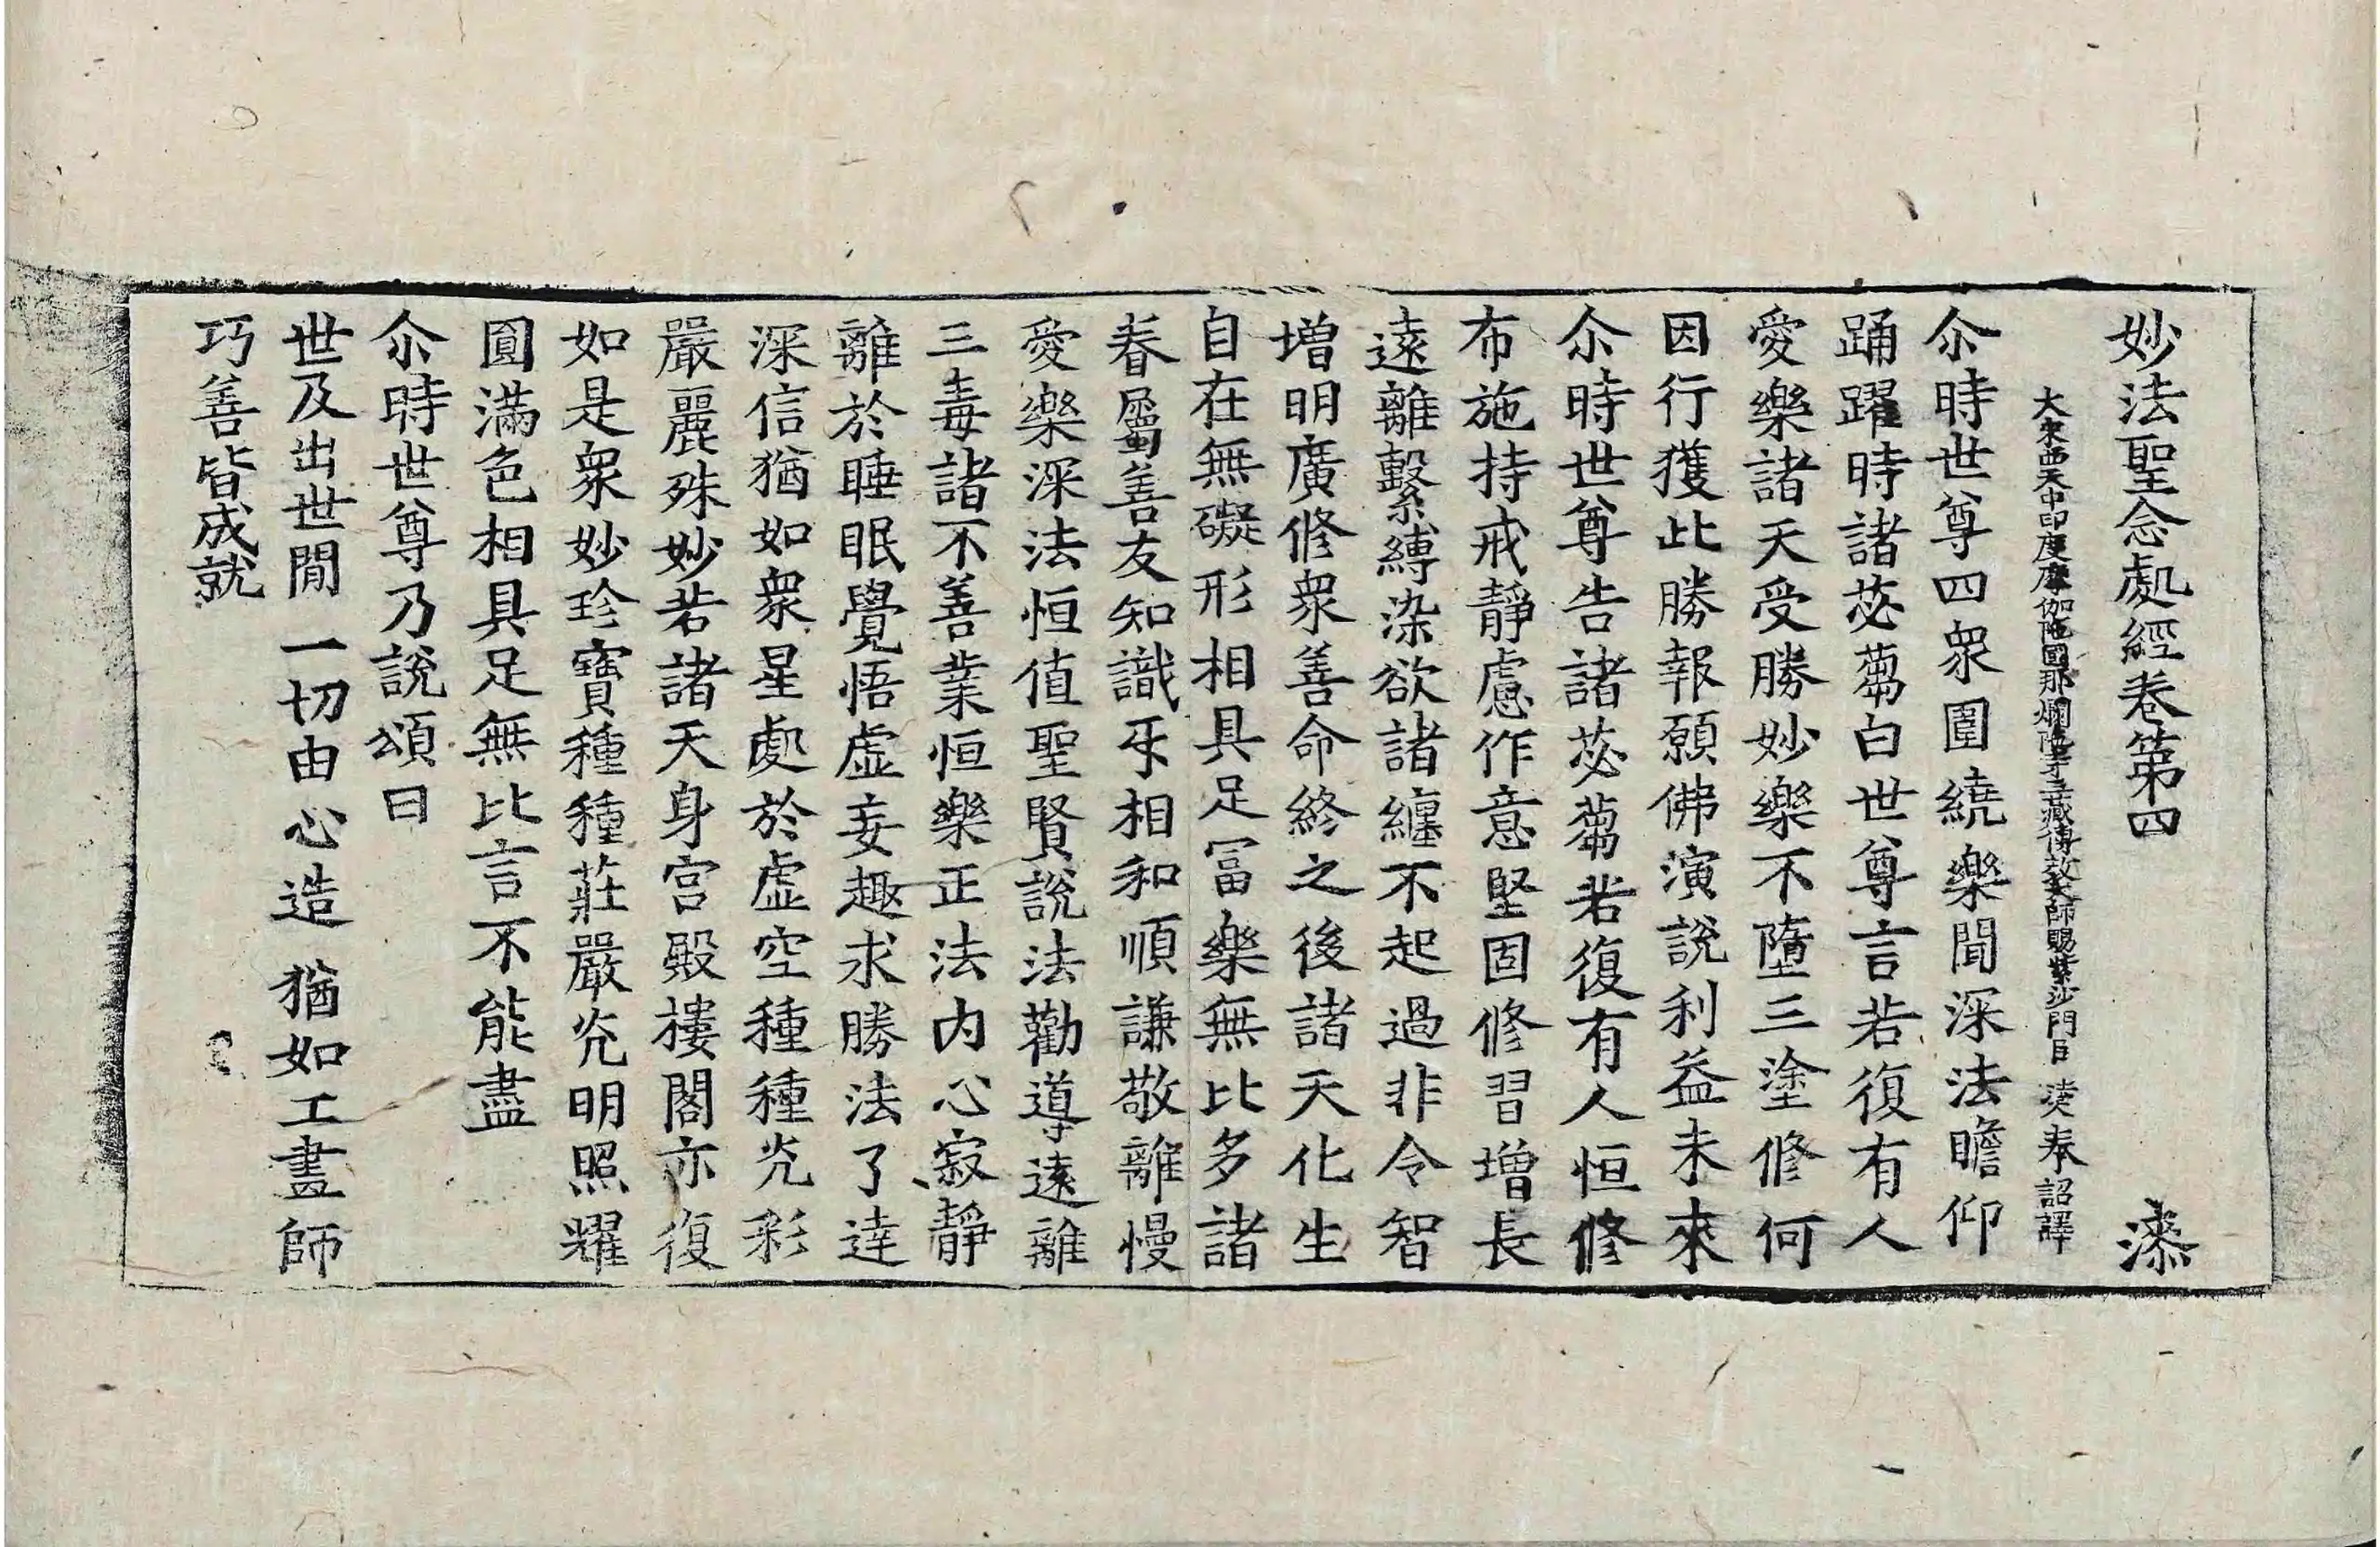 妙法聖念處經卷第四 漆
大宋西天中印度摩伽陁國那爛陁寺三藏傳教大師賜紫沙門臣 法天奉 詔譯
尒時世尊四衆圍繞樂聞深法瞻仰
踊躍時諸苾蒭白世尊言若復有人
愛樂諸天受勝妙樂不墮三塗修何
因行獲此勝報願佛演說利益未來
尒時世尊告諸苾蒭若復有人恒修
布施持戒靜慮作意堅固修習增長
遠離繫縛染欲諸纏不起過非令智
增明廣修衆善命終之後諸天化生
自在無礙形相具足冨樂無比多諸
眷屬善友知識乎相和順謙敬離慢
愛樂深法恒值聖賢說法勸導遠離
三毒諸不善業恒樂正法內心寂靜
離於睡眠覺悟虛妄趣求勝法了達
深信猶如衆星處於虛空種種光彩
嚴麗殊妙若諸天身宮殿樓閣亦復
如是衆妙珍寶種種莊嚴光明照耀
圓滿色相具足無比言不能盡
尒時世尊乃說頌曰
世及出世間 一切由心造 猶如工畫師
巧善皆成就